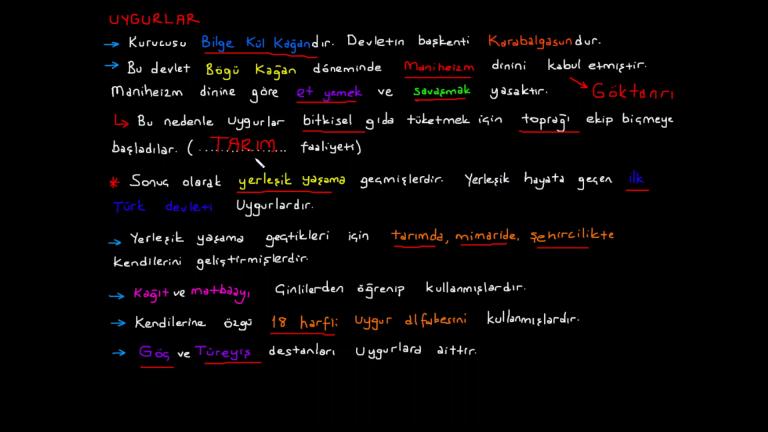 UYGURLAR
→ Kurucusu Bilge Kül Kağandır. Devletin başkenti Karabalgasundur.
→ Bu devlet Bögü Kağan döneminde Maniheizm dinini kabul etmiştir.
Maniheizm dinine göre et yemek ve savaşmak yasaktır. Göktanrı
↳ Bu nedenle Uygurlar bitkisel gıda tüketmek için toprağı ekip biçmeye
başladılar. (...TARIM... faaliyeti)
* Sonuç olarak yerleşik yaşama geçmişlerdir. Yerleşik hayata geçen ilk
Türk devleti Uygurlardır.
→ Yerleşik yaşama geçtikleri için tarımda, mimaride, şehircilikte
kendilerini geliştirmişlerdir.
→ Kağıt ve matbaayı Çinlilerden öğrenip kullanmışlardır.
→ Kendilerine özgü 18 harfli Uygur alfabesini kullanmışlardır.
→ Göç ve Türeyiş destanları Uygurlara aittir.